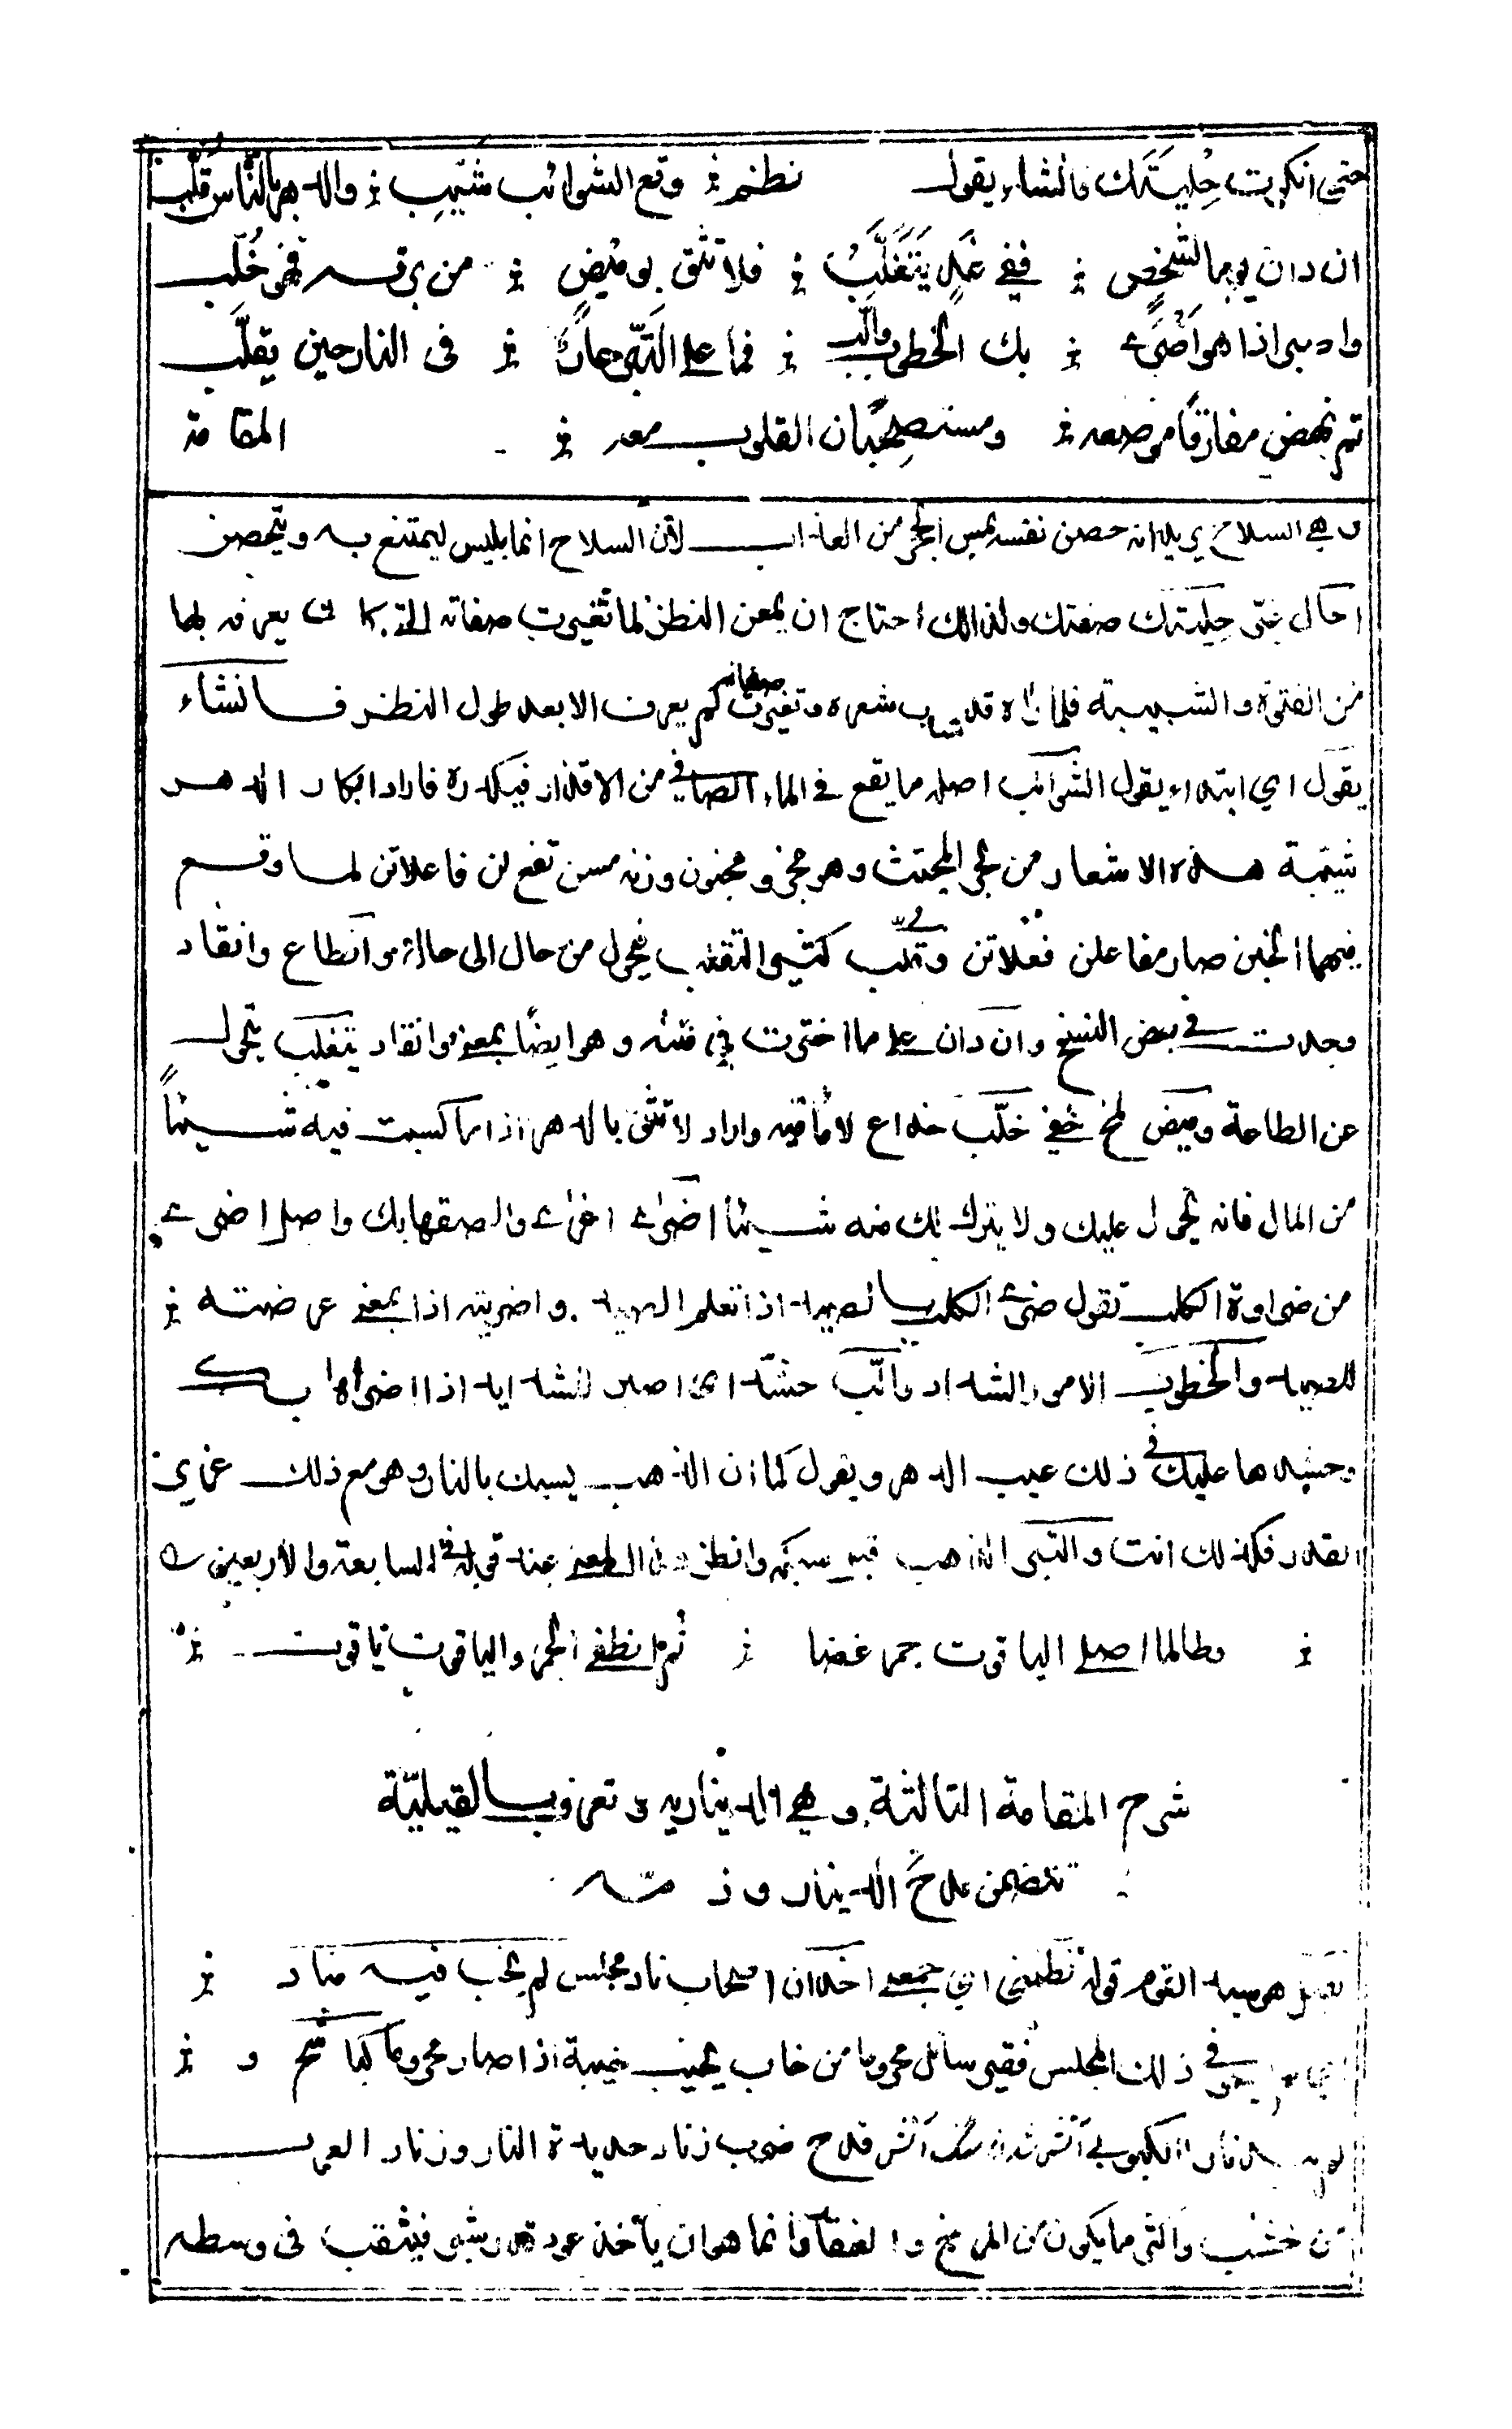 حتى انكرت حِليَتَك فانشاء يقول نظم وقع الشوائب شَيَّبَ والدهر بالنّاس قُلَّب
ان دان يوما لشخصٍ ففي غدٍ يَتَغَلَّبُ فلا تثق بوميض من برقه فهو خُلّب
واصبر اذا هو اَضْرَى بك الخطوب والّب فما على التبر عارٌ فى النار حين يقلّب
ثم نهض مفارقًا موضعه ومستصحبًا القلوب معه المقامة
السلاح يريد انه حصن نفسه من العذاب لأن السلاح انما يلبس ليمتنع به ويتحصن
احال غيّر حِليتك صفتك ولذلك احتاج ان يمعن النظر لما تغيرت صفاته التى كان يعرفه بها
من الفتوة والشبيبة فلما راه قد شاب شعره وتغيرت صفاته لم يعرف الا بعد طول النظر فانشاء
يقول اي ابتداء يقول الشوائب اصله ما يقع فى الماء الصافي من الاقذار فيكدره فاراد اكدار الدهر
شيّبه هذه الاشعار من بحر المجتث وهو مجزو مخبون وزنه مس تفع لن فاعلاتن لما وقع
فيهما الخبن صار مفاعلن فعلاتن وقلّب كثير التقلب يحول من حال الى حال دان اطاع وانقاد
وجدت في بعض النسخ وان دان على ما اخترت في وهو ايضًا بمعنى وانقاد يتغلب يتحول
عن الطاعة وميض لمح خفي خلّب خداع لا ماء فيه واراد لا تثق بالدهر اذا ما كسبت فيه شيئاً
من المال فانه يحول عليك ولا يترك لك منه شيئا اضرى اغرى والصقها بك واصل اضرى
من ضراوة الكلب تقول ضرى الكلب بالصيد اذا تعلم الصيد واضريته اذا بمعنى عرضته
للصيد والخطوب الامور الشداد والّب حشد اى اصبر للشدايد اذا اضراها بك
وحشدها عليك في ذلك عيب الدهر ويقول كما ان الذهب يسبك بالنار وهو مع ذلك عزيز
القدر فكذلك انت والتبر الذهب قبل سبكه وانظر هذا المعنى عند قوله فى السابعة والاربعين
وطالما اصلى الياقوت جمر غضا ثم انطفى الجمر والياقوت ياقوت
شرح المقامة الثالثة وهي الدينارية وتعرف بالقيليّة
تتضمن مدح الدينار وذمّه
القوم قوله نظمنى اي جمعنى اخدان اصحاب ناد مجلس لم يخب فيه مناد
في ذلك المجلس فقير سائل محروما من خاب يخيب خيبة اذا صار محروما كبا شح و
قدح ضرب زناد حديدة النار وزناد العرب
من خشب واكثر ما يكون من المرخ والعفار وانما هو ان يأخذ عودة قدر شبر فيثقب فى وسطه